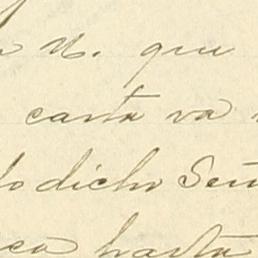 N. que
carta va
dicho Señ
hasta